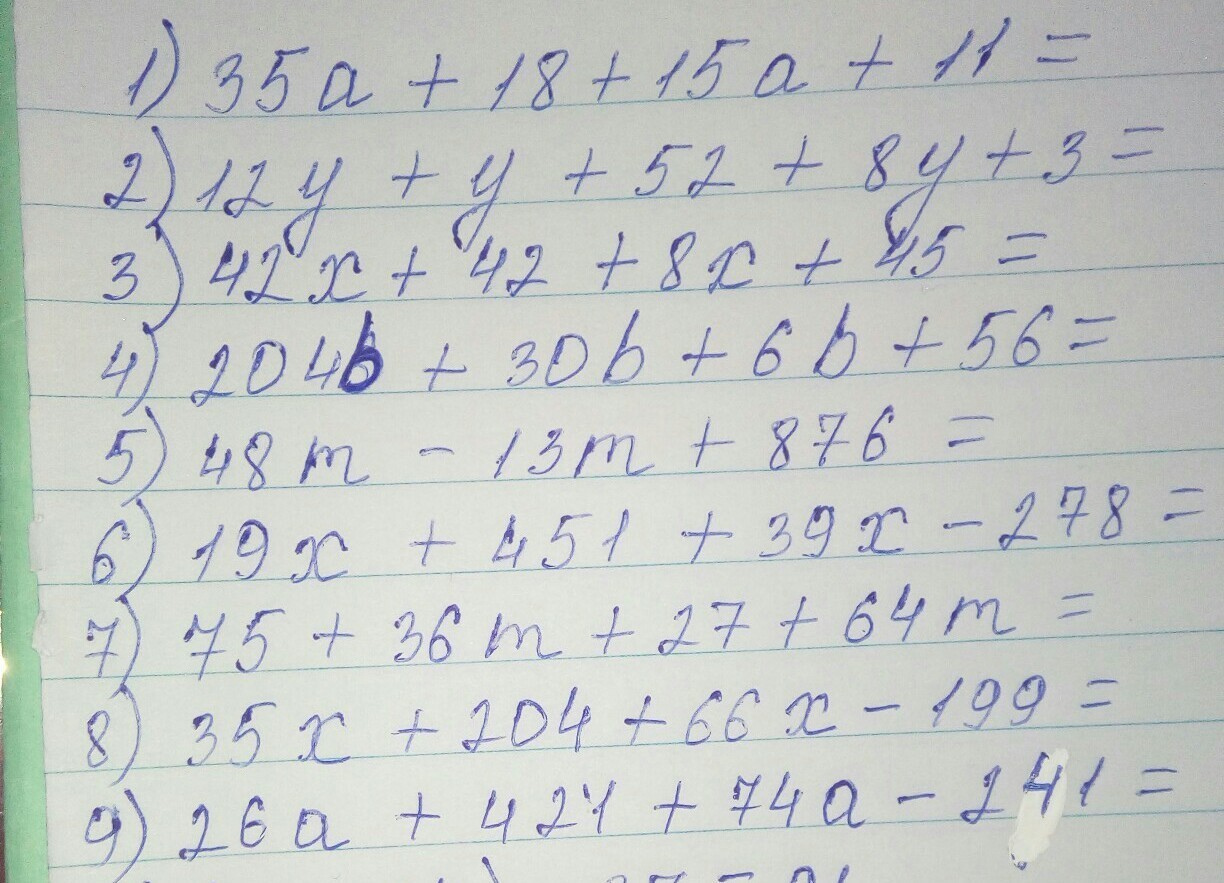 1) 35a + 18 + 15a + 11 =
2) 12y + y + 52 + 8y + 3 =
3) 42x + 42 + 8x + 45 =
4) 204b + 30b + 6b + 56 =
5) 48m - 13m + 876 =
6) 19x + 451 + 39x - 278 =
7) 75 + 36m + 27 + 64m =
8) 35x + 204 + 66x - 199 =
9) 26a + 421 + 74a - 241 =